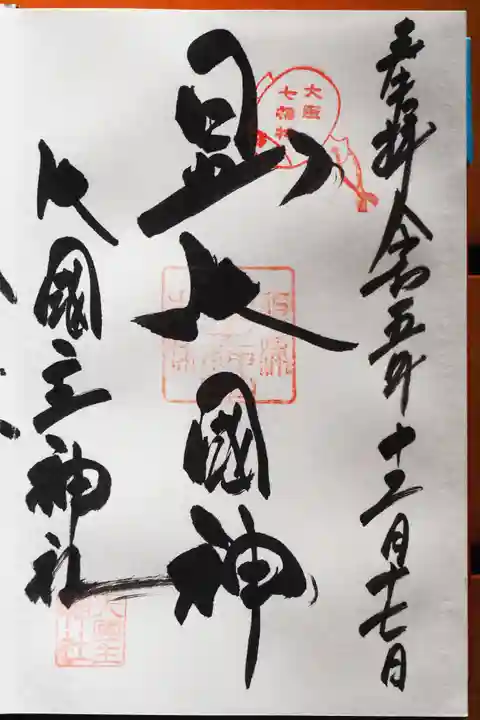 奉拝 令和五年十二月十七日
大阪
七福神
日出大國神
大國主神社
大國主
神社